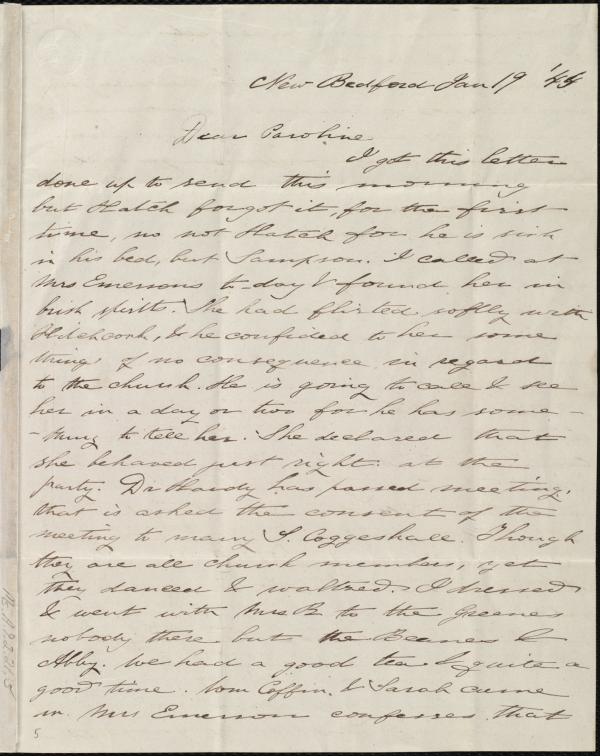 New Bedford Jan 19 '44
Dear Caroline
I got this letter
done up to send this morning
but Hatch forgot it, for the first
time, no not Hatch for he is sick
in his bed, but Sampson. I called at
Mrs Emersons to-day & found her in
brisk spirits. She had flirted softly with
Hitchcock, & he confided to her some
things of no consequence in regard
to the church. He is going to call & see
her in a day or two for he has some-
-thing to tell her. She declared that
she behaved just right at the
party. Dr Hardy has passed meeting,
that is asked the consent of the
meeting to marry S. Coggeshall. Though
they are all church members, yet
they danced & waltzed. I dressed
& went with Mrs B to the Greenes
nobody there but the &
Abby. We had a good tea & quite a
good time. Wm Coffin & Sarah came
in Mrs Emerson confesses that
5